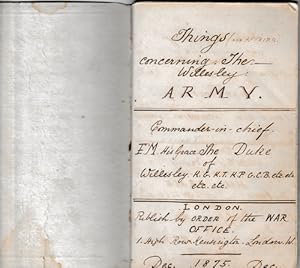 Things
concerning The
Willesley
A.R.M.Y.
Commander-in-chief
F.M. His Grace The Duke
of
Willesley K.G. K.T. K.P. G.C.B. etc etc
etc. etc
LONDON.
Publish by ORDER of the WAR
OFFICE.
1. High Row Kensington London. W.
Dec. 1875 Dec.